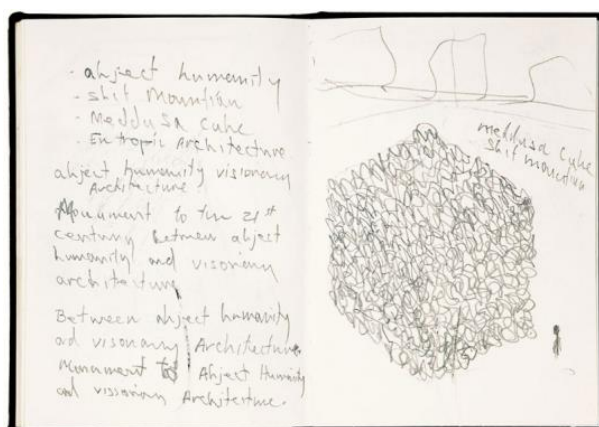 - abject humanity
- shit Mountian
- Meddusa cube
- Entropic Architecture
abject humanity visionary
Architecture
Monument to the 21st
century between abject
humanity and visonary
architecture
Between abject humanity
ad visonary Architecture.
Monument to Abject Humanity
and vissonary Architecture.
meddusa cube
shit mountian